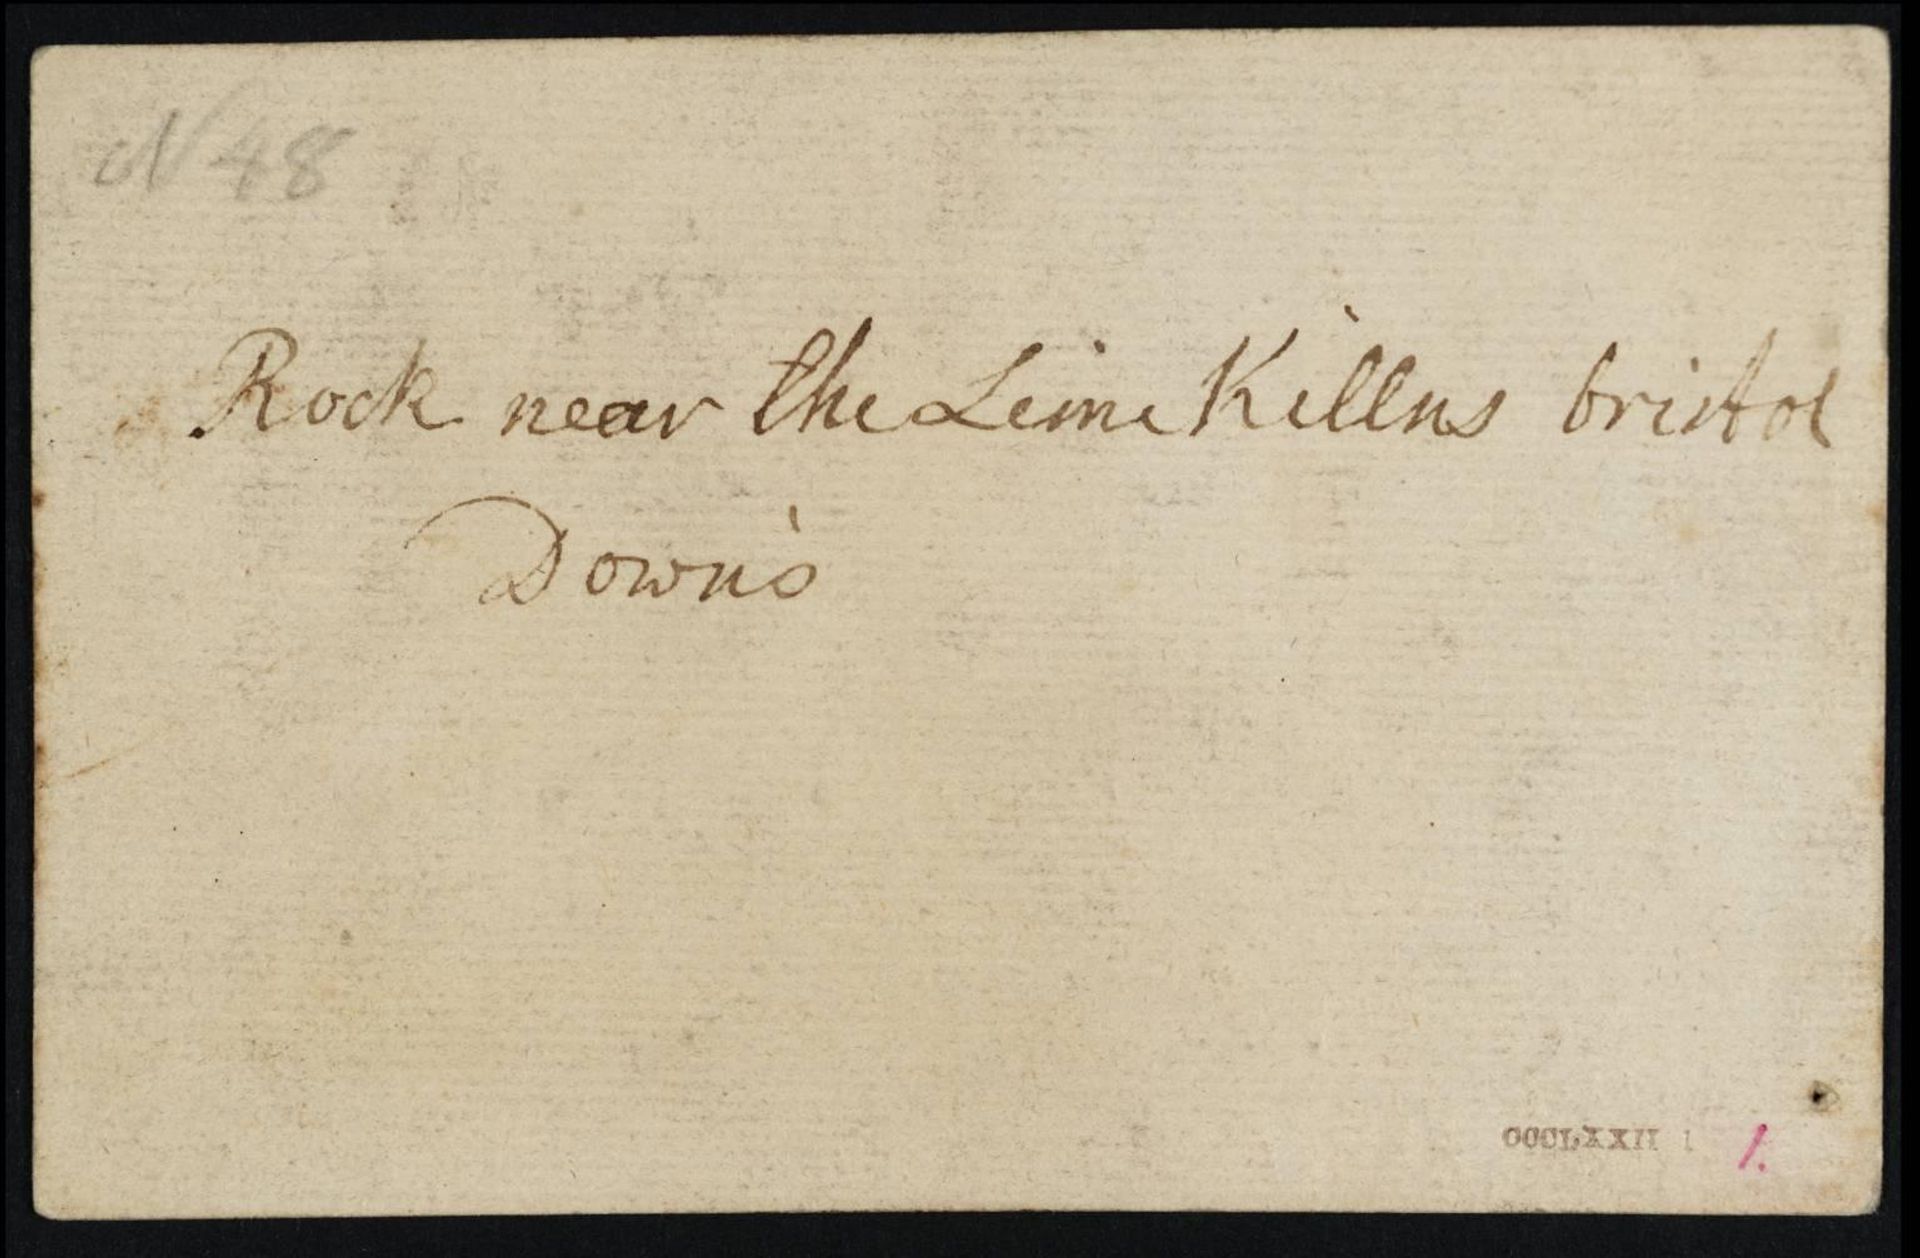 N 48
Rock near the Leime Killns bristol
Down's
CCCLXXII 1
1.